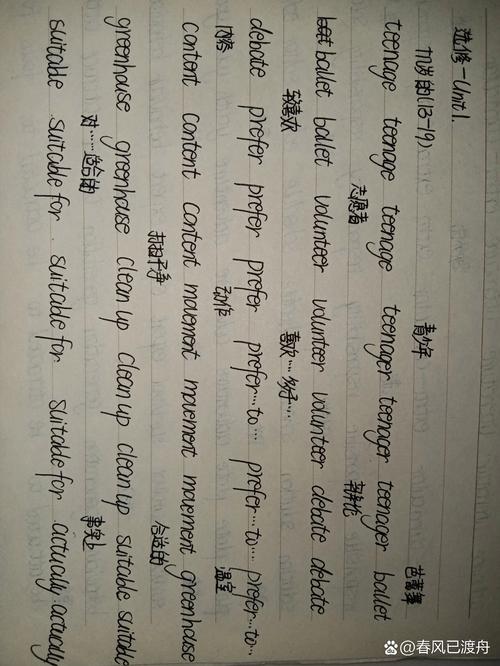 选修一Unit1.
十几岁的(13-19) 青少年 芭蕾舞
teenage teenage teenage teenager teenager teenager ballet
志愿者
ballet ballet volunteer volunteer volunteer debate debate
较喜欢 喜欢……多于……
debate prefer prefer prefer prefer...to... prefer...to... prefer...to...
内容 动作 温室
content content content movement movement movement greenhouse
打扫干净 合适的
greenhouse greenhouse clean up clean up clean up suitable suitable
对……适合的 事实上
suitable suitable for suitable for suitable for actually actually
百家号/春风已渡舟